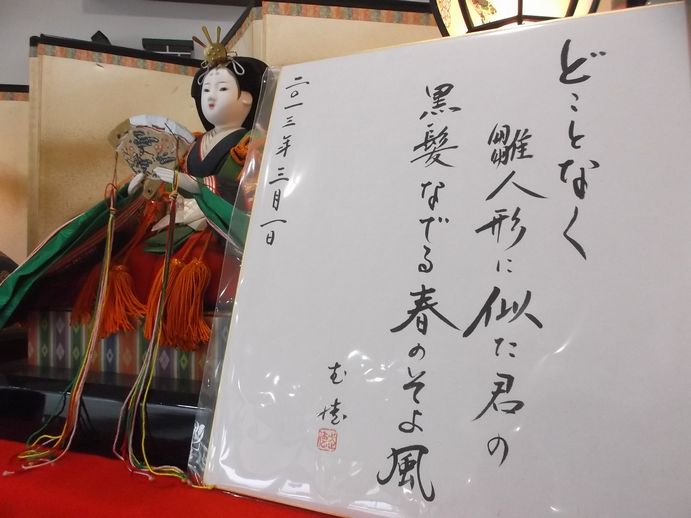 どことなく
雛人形に似た君の
黒髪なでる春のそよ風
二〇一三年三月一日